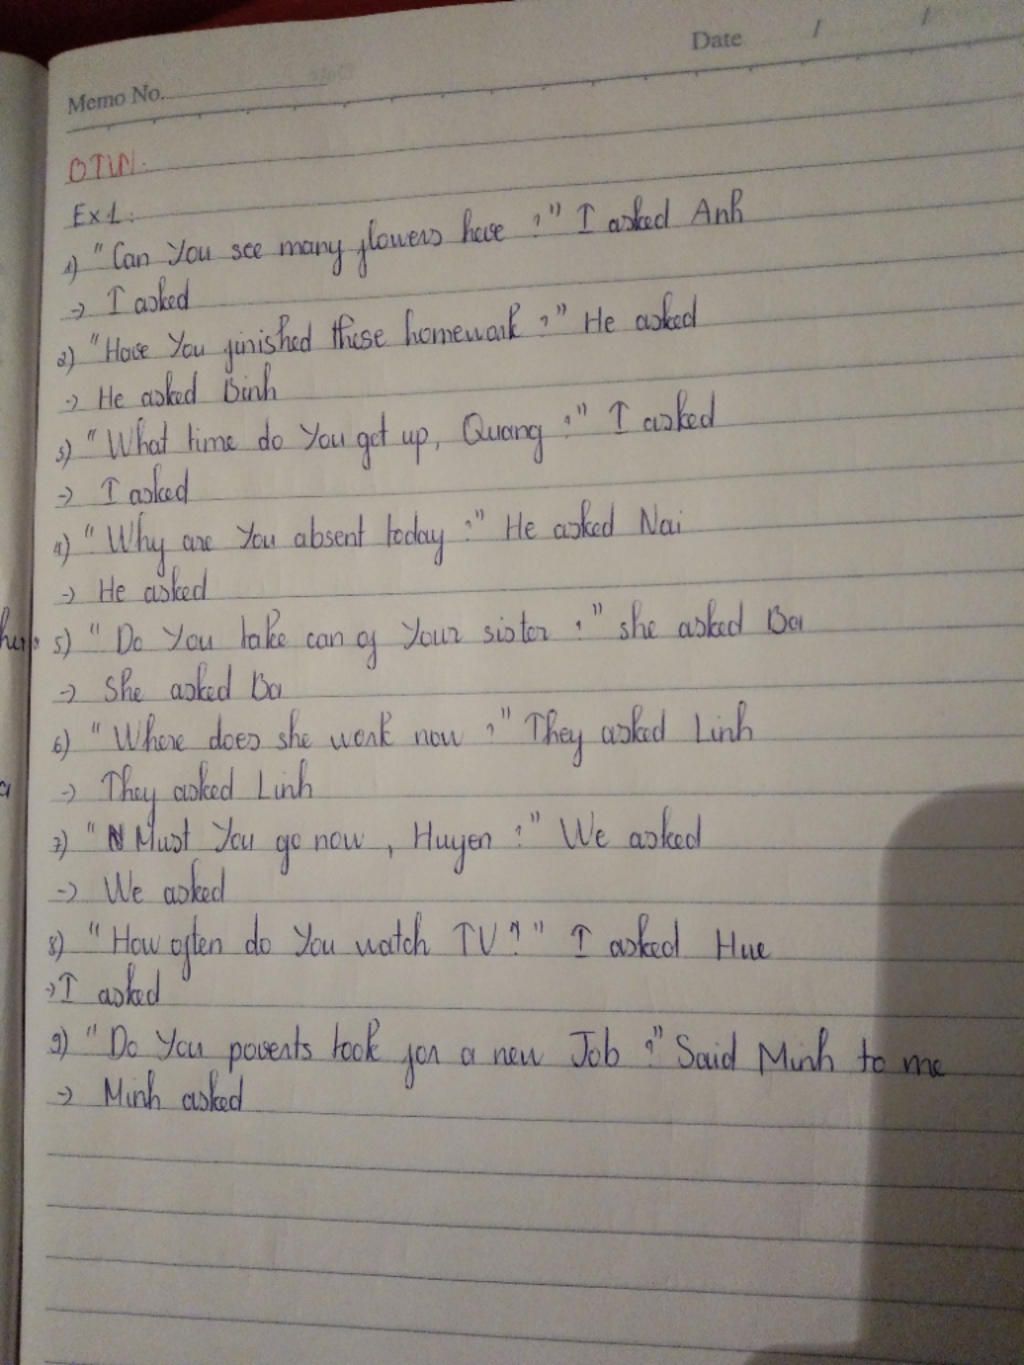 Date / /
Memo No.
BTVN.
Ex1:
1) "Can You see many flowers here ?" I asked Anh
-> I asked
2) "Have You finished these homework ?" He asked
-> He asked Binh
3) "What time do You get up, Quang ?" I asked
-> I asked
4) "Why are You absent today ?" He asked Nai
-> He asked
5) "Do You take can of Your sister ?" she asked Ba
-> She asked Ba
6) "Where does she work now ?" They asked Linh
-> They asked Linh
7) "Must You go now, Huyen ?" We asked
-> We asked
8) "How often do You watch TV?" I asked Hue
-> I asked
9) "Do You parents look for a new Job ?" Said Minh to me
-> Minh asked